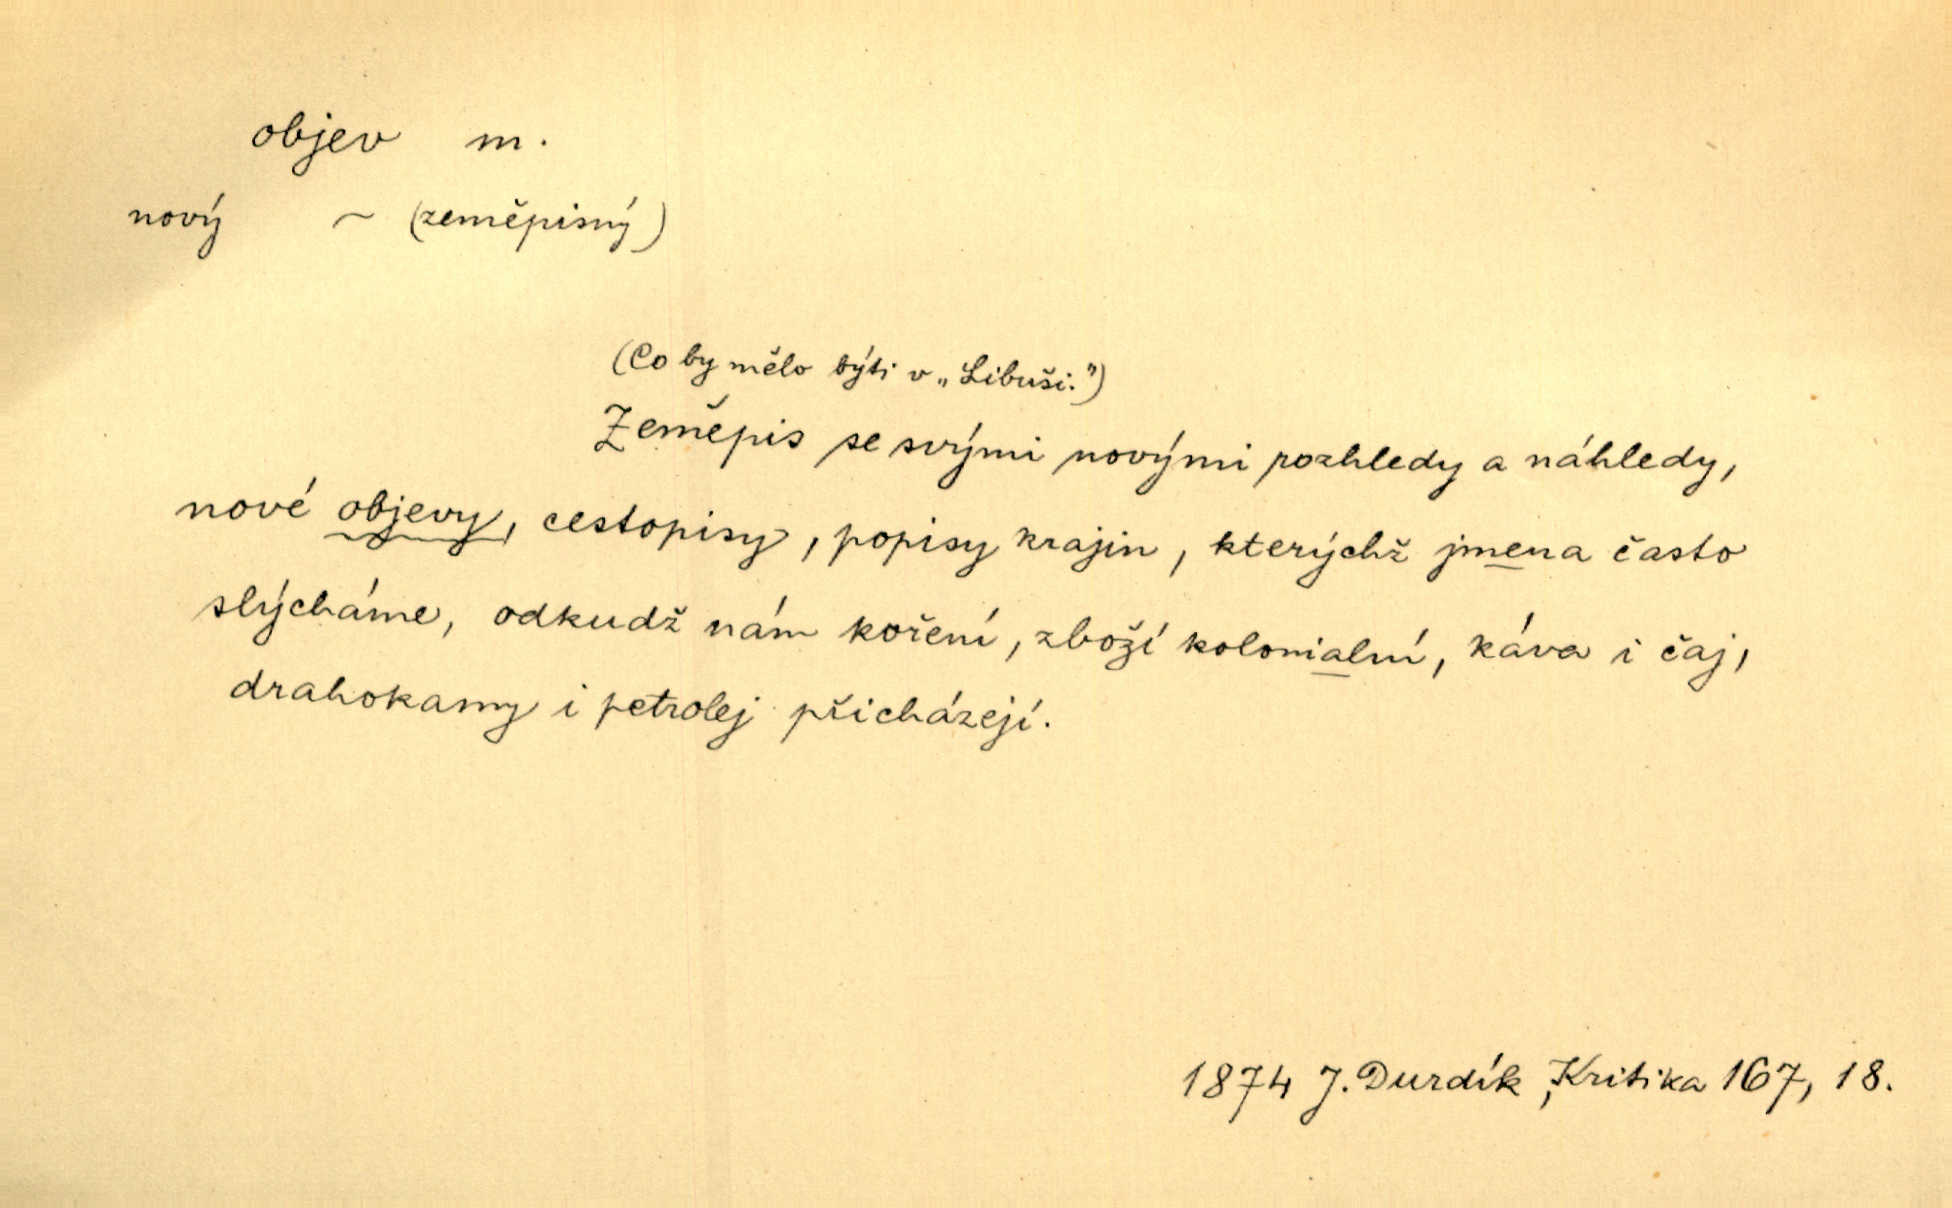 objev m.
nový ~ (zeměpisný)
(Co by mělo býti v „Libuši.")
Zeměpis se svými novými rozhledy a náhledy,
nové objevy, cestopisy, popisy krajin, kterýchž jmena často
slýcháme, odkudž nám koření, zboží kolonialní, káva i čaj,
drahokamy i petrolej přicházejí.
1874 J. Durdík, Kritika 167, 18.